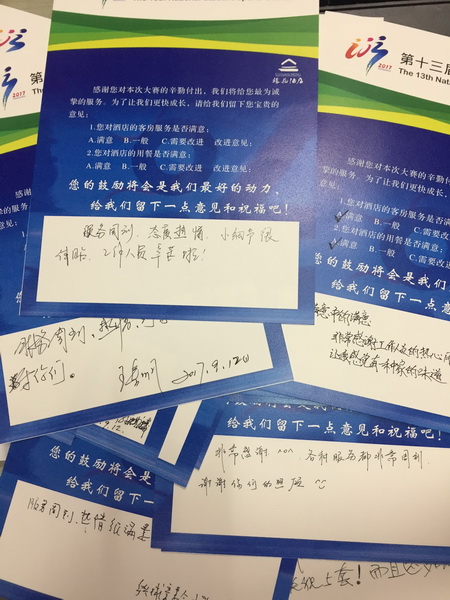 2017
第
2017
第十三届
The 13th Nat
感谢您对本次大赛的辛勤付出，我们将给您最为诚
挚的服务。为了让我们更快成长，请给我们留下您宝贵的
意见：
1.您对酒店的客房服务是否满意：
A.满意 B.一般 C.需要改进 改进意见：
2.您对酒店的用餐是否满意：
A.满意 B.一般 C.需要改进 改进意见：
您的鼓励将会是我们最好的动力，
给我们留下一点意见和祝福吧！
服务周到，态度热情，小细节很
体贴，工作人员辛苦啦！
感谢您对本次大赛的
挚的服务。为了让我们更快成长，
意见：
1.您对酒店的客房服务是否满意：
A.满意 B.一般 C.需要改进
2.您对酒店的用餐是否满意：
满意 B.一般 C.需要改进
您的鼓励将会是我们最
给我们留下一点
非常感谢工作人员的热心
让我感觉有一种家的味道
你们。 2017.9.12日
9.12
给我们留下一点意见和祝福吧！
非常感谢 ^^^ 各种服务都非常周到
谢谢你们的照顾
您的鼓励将会是
给我们留下一
服务周到、热情
5套！而且还